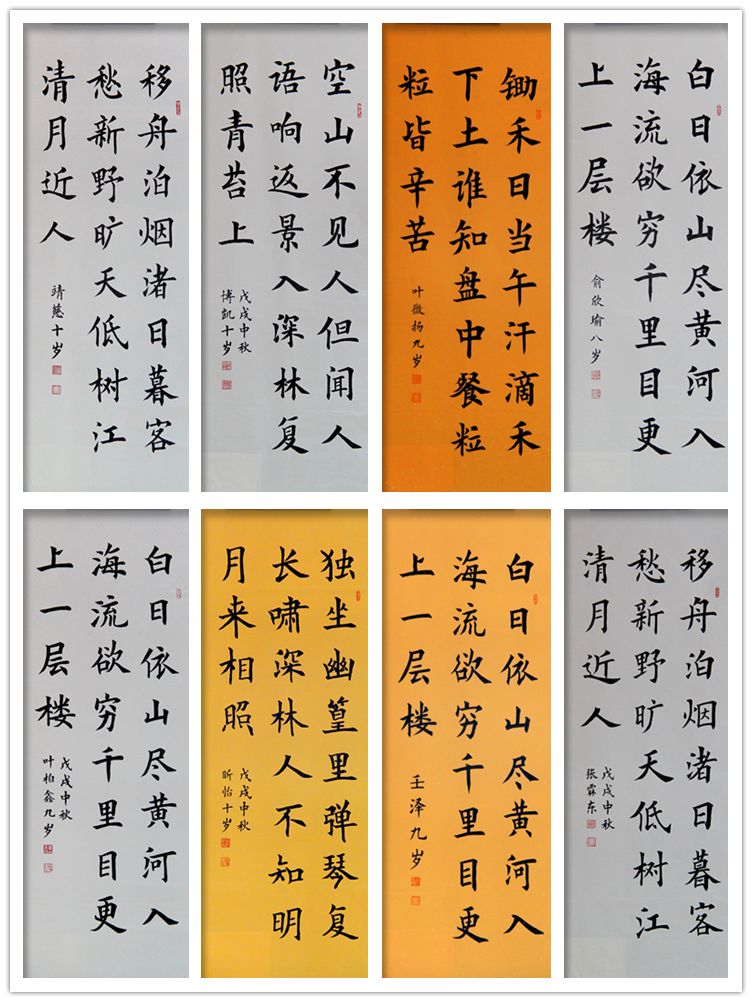 移舟泊烟渚日暮客
愁新野旷天低树江
清月近人
靖慈十岁
空山不见人但闻人
语响返景入深林复
照青苔上
戊戌中秋
博凯十岁
锄禾日当午汗滴禾
下土谁知盘中餐粒
粒皆辛苦
叶微扬九岁
白日依山尽黄河入
海流欲穷千里目更
上一层楼
俞欣瑜八岁
白日依山尽黄河入
海流欲穷千里目更
上一层楼
戊戌中秋
叶柏鑫九岁
独坐幽篁里弹琴复
长啸深林人不知明
月来相照
戊戌中秋
昕怡十岁
白日依山尽黄河入
海流欲穷千里目更
上一层楼
壬泽九岁
移舟泊烟渚日暮客
愁新野旷天低树江
清月近人
戊戌中秋
张霖东